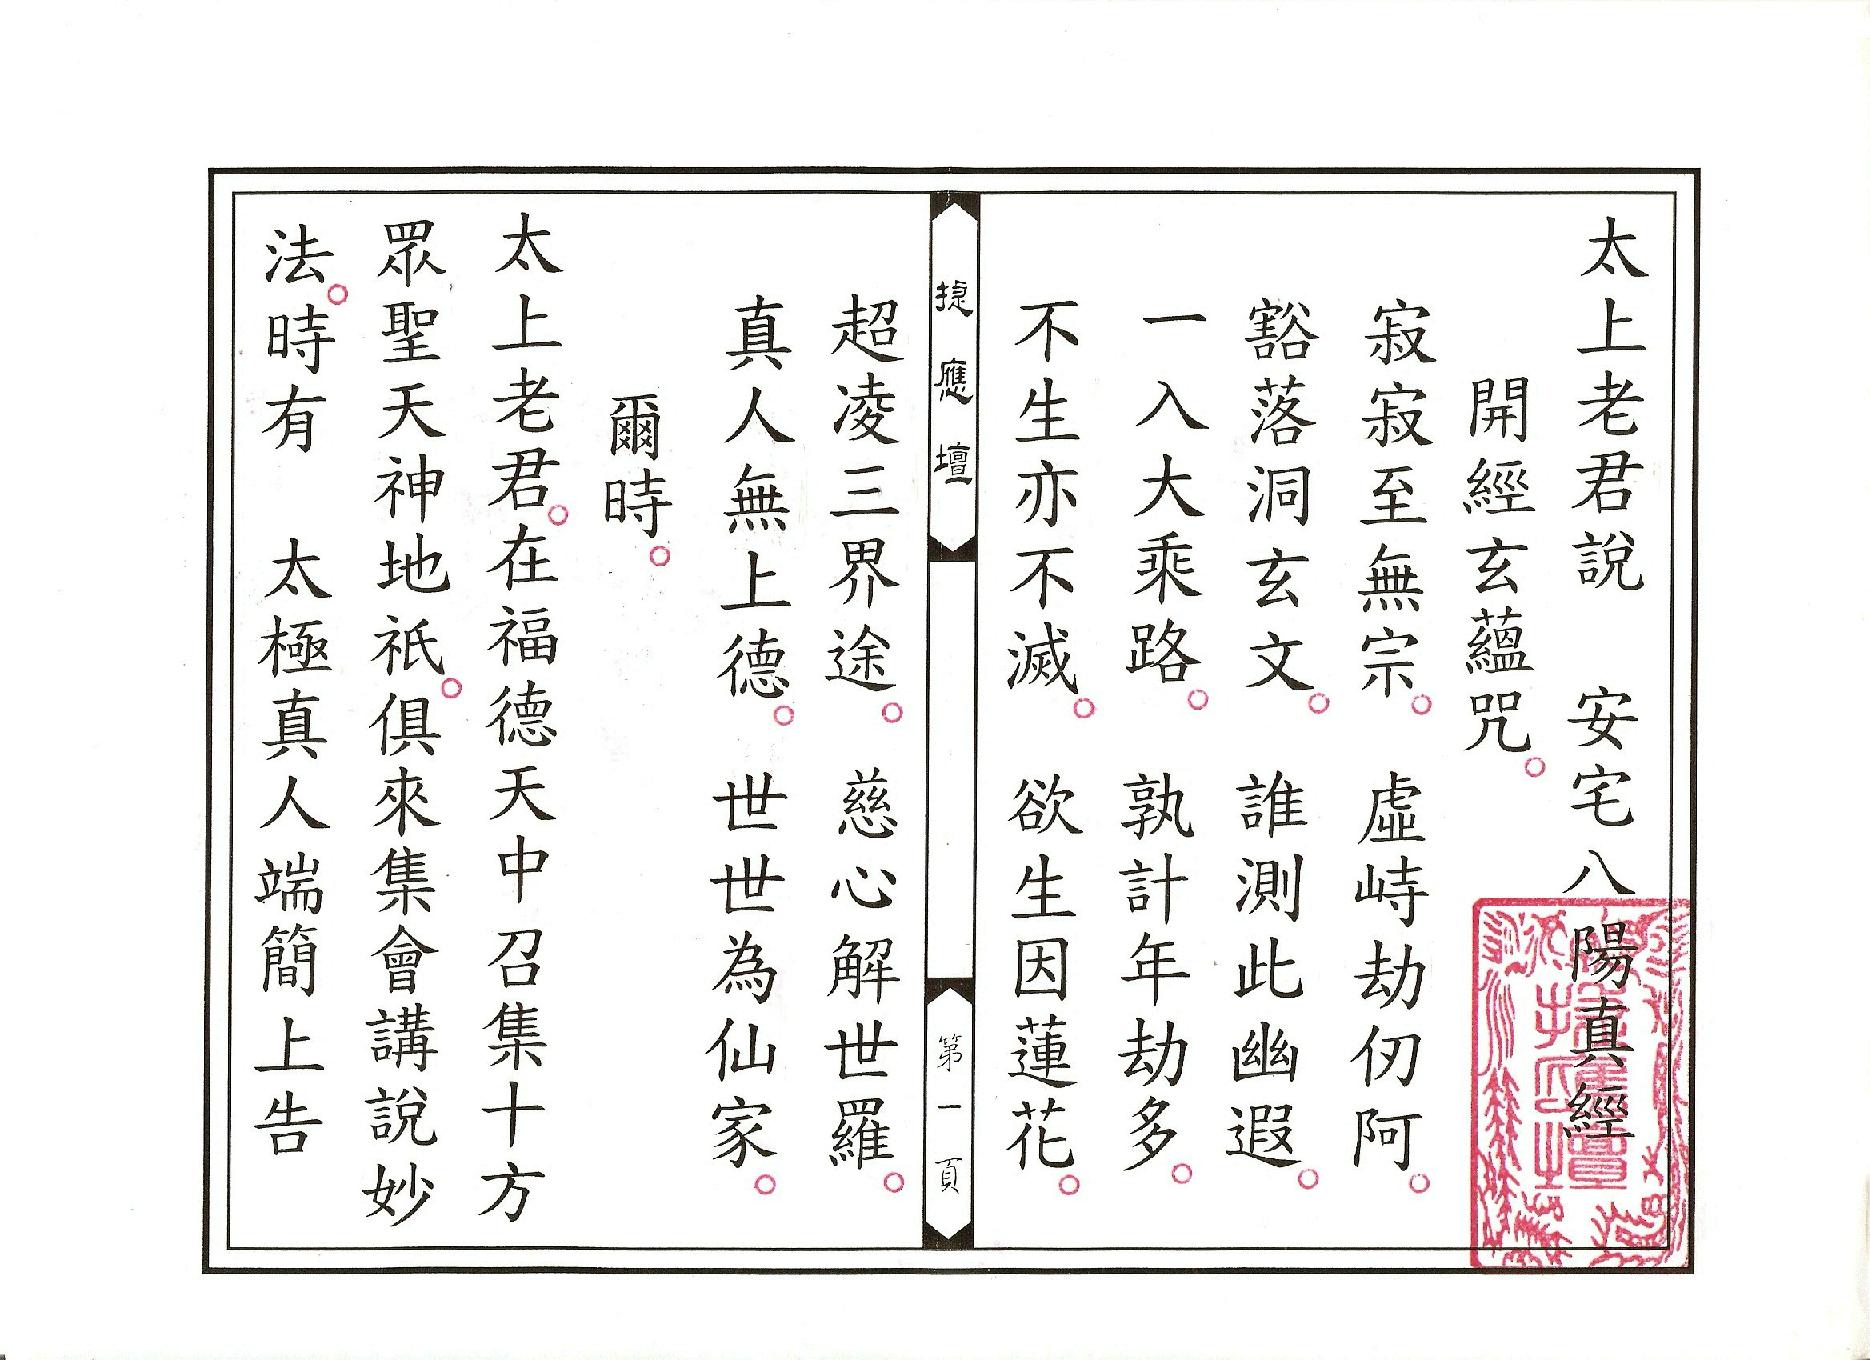 太上老君說　安宅八陽真經
開經玄蘊咒。
寂寂至無宗。　虛峙劫仞阿。
豁落洞玄文。　誰測此幽遐。
一入大乘路。　孰計年劫多。
不生亦不滅。　欲生因蓮花。
捷應壇
第一頁
超凌三界途。　慈心解世羅。
真人無上德。　世世為仙家。
爾時。
太上老君。在福德天中召集十方
眾聖天神地祇。俱來集會講說妙
法。時有　太極真人端簡上告